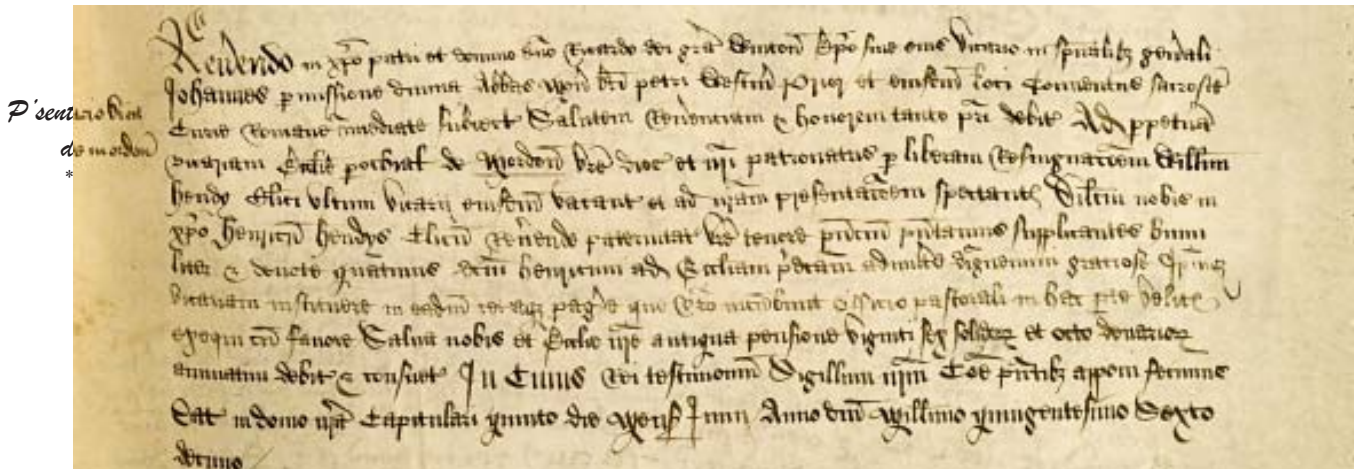 P'sentacio vicar
de mordon
*
Rev'endo in xp'o patri et domino d'no Ricardo dei gra' Winton' Ep'o sive eius vicario in sp'ualib3 gen'ali
Johannes p'missione divina Abbas Mon' b'ti petri Westm' Prior et eiusd'm loci Conventus sacrosce'
Curie Romane i'mediate subiect' Salutem Rev'entiam & honorem tanto p'ri debit' Ad p'petua'
vicariam Eccl'ie p'ochial' de Mordon' v're dioc' et n'ri patronatus p' liberam Resignac'oem Will'mi
hendy Cl'ici ultimi vicarii eiusd'm vacant' et ad n'ram presentac'oem spectant' Dil'cm nobis in
xp'o henricu' hendy Cl'icu' Rev'ende paternitati v're tenore p'nciu' p'ntamus supplicantes humi
lit' & devote q'atinus d'cm henricum ad Eccl'iam p'dictam admitt'e dignemini graciose Ip'mq3
vicariam instituere in eadem cet'aq3 pag'e que v'ro incu'bunt officio pastorali in hac p'te velitis
exequi cu' favore Salva nobis et Eccl'ie n're antiqua pensione viginti sex solidor' et octo denarior'
annuatim debit' & consuet' In Cuius Rei testimoniu' Sigillum n'rm Co'e p'ntib3 apponi fecimus
Dat' in domo n'ra Capitulari quinto die Mens' Junii Anno d'ni Millimo quingentesimo Sexto
decimo